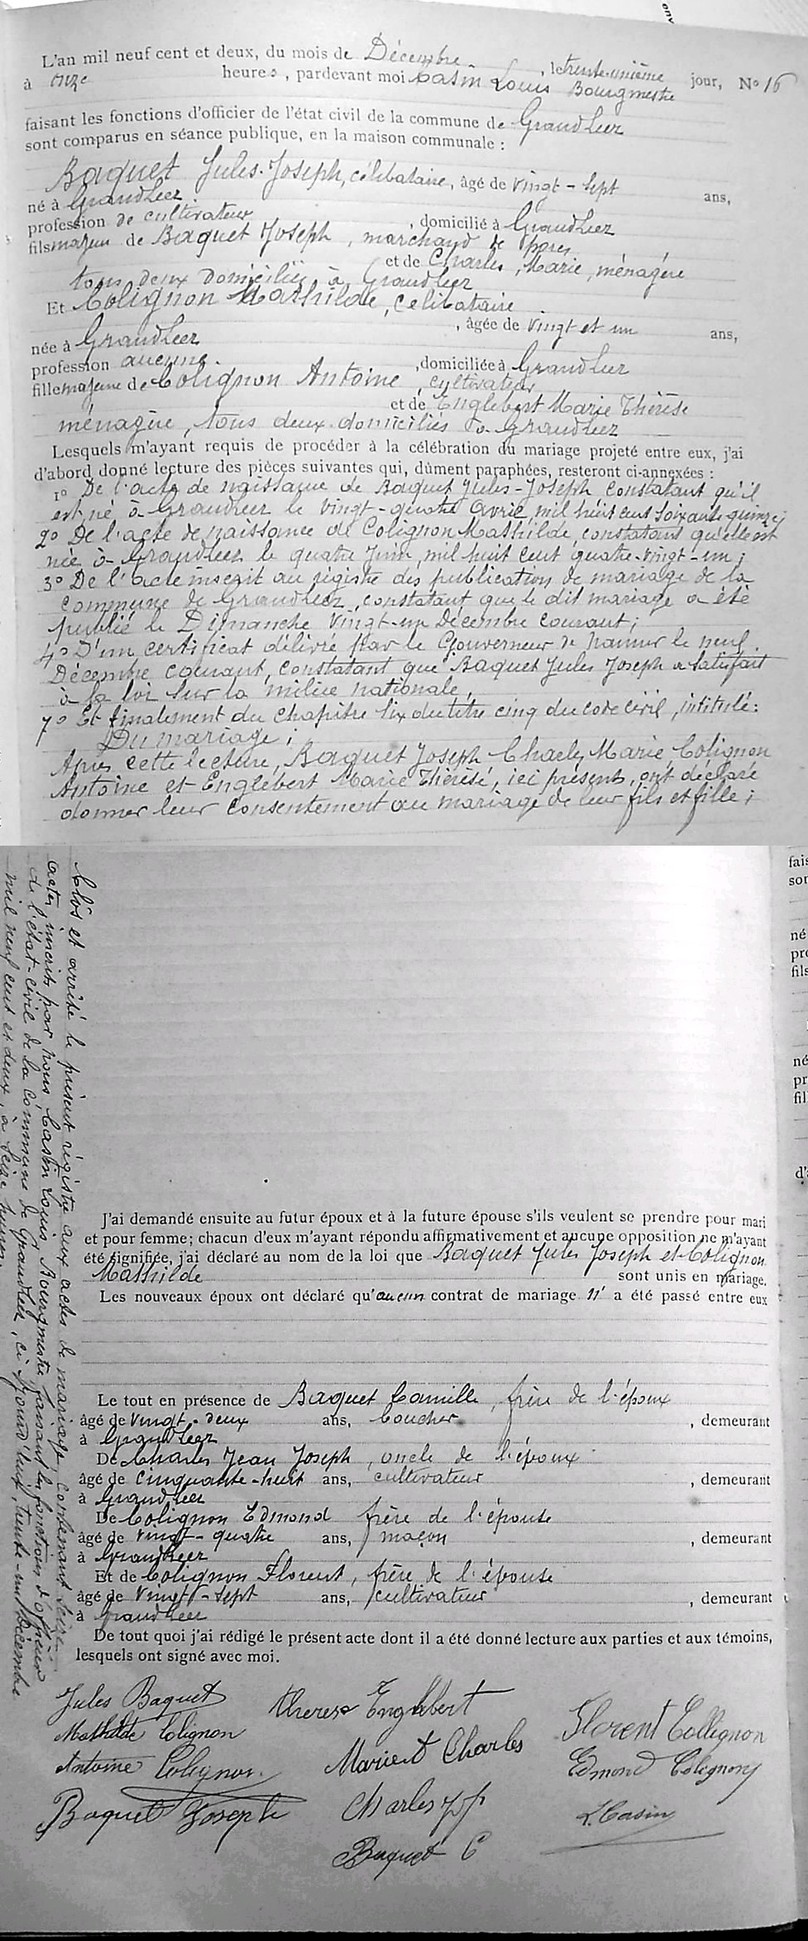 L'an mil neuf cent et deux, du mois de Décembre, le trente-unième jour, N° 16
à onze heures, pardevant moi Casin Louis Bourgmestre
faisant les fonctions d'officier de l'état civil de la commune de Grandleez
sont comparus en séance publique, en la maison communale :
Baquet Jules-Joseph, célibataire, âgé de vingt-sept ans,
né à Grandleez
profession de cultivateur, domicilié à Grandleez
fils majeur de Baquet Joseph, marchand de
et de Charles, Marie, ménagère
tous deux domiciliés à Grandleez
Et Colignon Mathilde, célibataire
née à Grandleez, âgée de vingt et un ans,
profession aucune, domiciliée à Grandleez
fille majeure de Colignon Antoine, cultivateur
et de Englebert Marie Thérèse
ménagère, tous deux domiciliés à Grandleez
Lesquels m'ayant requis de procéder à la célébration du mariage projeté entre eux, j'ai
d'abord donné lecture des pièces suivantes qui, dûment paraphées, resteront ci-annexées :
1° De l'acte de naissance de Baquet Jules-Joseph constatant qu'il
est né à Grandleez le vingt-quatre avril mil huit cent soixante-quinze;
2° De l'acte de naissance de Colignon Mathilde, constatant qu'elle est
née à Grandleez le quatre Juin mil huit cent quatre-vingt-un;
3° De l'acte inscrit au registre des publication de mariage de la
commune de Grandleez, constatant que le dit mariage a été
publié le Dimanche vingt-un Décembre courant;
4° D'un certificat délivré par le Gouverneur de Namur le neuf
Décembre courant, constatant que Baquet Jules Joseph a satisfait
à la loi sur la milice nationale,
7° Et finalement du chapitre six du titre cinq du code civil, intitulé:
Du mariage;
Après cette lecture, Baquet Joseph Charles Marie Colignon
Antoine et Englebert Marie Thérèse, ici présent, ont déclaré
donner leur consentement au mariage de leur fils et fille;
Clos et arrêté le présent registre aux actes de mariage contenant seize
actes inscrits par nous, Casin Louis Bourgmestre faisant les fonctions d'officier
de l'état-civil de la commune de Grandleez, ci jourd'hui, trente-un Décembre
mil neuf cent et deux, à seize heures.
J'ai demandé ensuite au futur époux et à la future épouse s'ils veulent se prendre pour mari
et pour femme; chacun d'eux m'ayant répondu affirmativement et aucune opposition ne m'ayant
été signifiée, j'ai déclaré au nom de la loi que Baquet Jules Joseph et Colignon
Mathilde sont unis en mariage.
Les nouveaux époux ont déclaré qu'aucun contrat de mariage n' a été passé entre eux
Le tout en présence de Baquet Camille, frère de l'époux
âgé de vingt-deux ans, boucher, demeurant
à Grandleez
De Charles Jean Joseph, oncle de l'époux
âgé de cinquante-huit ans, cultivateur, demeurant
à Grandleez
De Colignon Edmond frère de l'épouse
âgé de vingt-quatre ans, maçon, demeurant
à Grandleez
Et de Colignon Florent, frère de l'épouse
âgé de vingt-sept ans, cultivateur, demeurant
à Grandleez
De tout quoi j'ai rédigé le présent acte dont il a été donné lecture aux parties et aux témoins,
lesquels ont signé avec moi.
Jules Baquet
Mathilde Colignon
Antoine Colignon
Baquet Joseph
Therese Englebert
Marie Charles
Charles JJ
Baquet C
Florent Collignon
Edmond Colignon
L. Casin